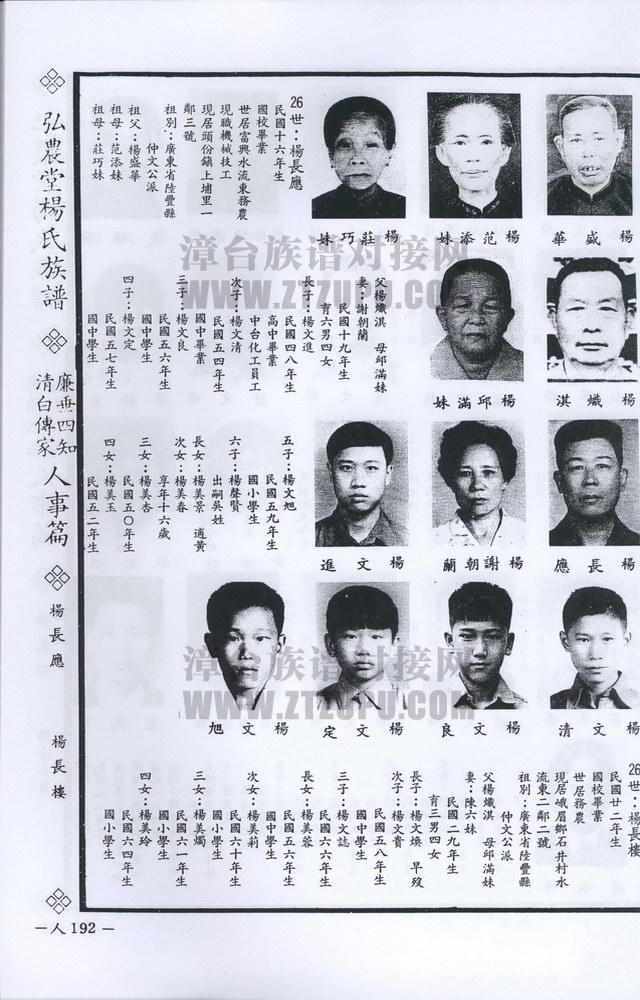 26世：楊長應
民國十六年生
國校畢業
世居富興水流東務農
現職機械技工
現居頭份鎮上埔里一
鄰三號
祖別：廣東省陸豐縣
仲文公派
祖父：楊盛華
祖母：范添妹
祖母：莊巧妹
楊盛華
楊范添妹
楊莊巧妹
父楊熾淇 母邱滿妹
妻：謝朝蘭
民國十九年生
育六男四女
長子：楊文進
民國四八年生
高中畢業
中台化工員工
次子：楊文清
民國五四年生
國中畢業
三子：楊文良
民國五六年生
國中學生
四子：楊文定
民國五七年生
國中學生
楊熾淇
楊邱滿妹
五子：楊文旭
民國五九年生
國小學生
六子：楊聲賢
出嗣吳姓
長女：楊美景 適黃
次女：楊美春
享年十六歲
三女：楊美杏
民國五〇年生
四女：楊美玉
民國五二年生
楊長應
楊謝朝蘭
楊文進
楊文清
楊文良
楊文定
楊文旭
26世：楊長樓
民國廿二年生
國校畢業
世居務農
現居峨眉鄉石井村水
流東二鄰二號
祖別：廣東省陸豐縣
仲文公派
父楊熾淇 母邱滿妹
妻：陳六妹
民國二九年生
育三男四女
長子：楊文煥 早歿
次子：楊文貴
民國五八年生
國中學生
三子：楊文誌
民國六六年生
長女：楊美蓉
民國五六年生
國中學生
次女：楊美莉
民國六十年生
國小學生
三女：楊美燭
民國六一年生
國小學生
四女：楊美玲
民國六四年生
國小學生
弘農堂楊氏族譜
廉垂四知
清白傳家
人事篇
楊長應
楊長樓
—人192—
漳台族谱对接网
WWW.ZTZUPU.COM
漳台族谱对接网
WWW.ZTZUPU.COM